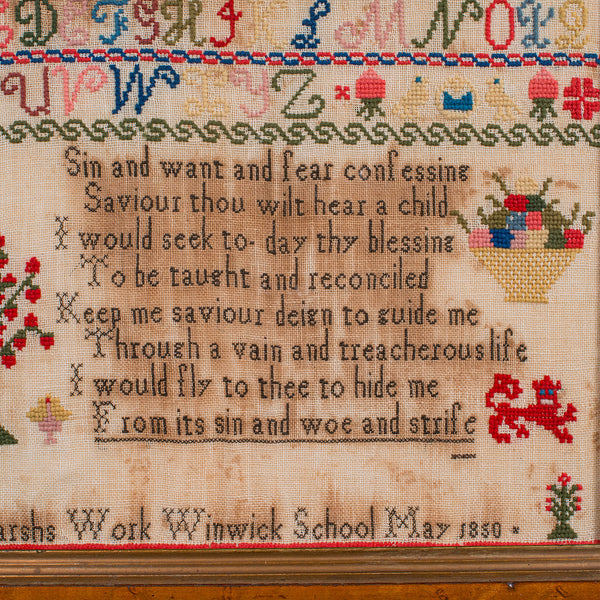 D E F G H I L M N O
U V W Z
Sin and want and fear confessing
Saviour thou wilt hear a child
I would seek to-day thy blessing
To be taught and reconciled
Keep me saviour deign to guide me
Through a vain and treacherous life
I would fly to thee to hide me
From its sin and woe and strife
arshs Work Winwick School May 1850